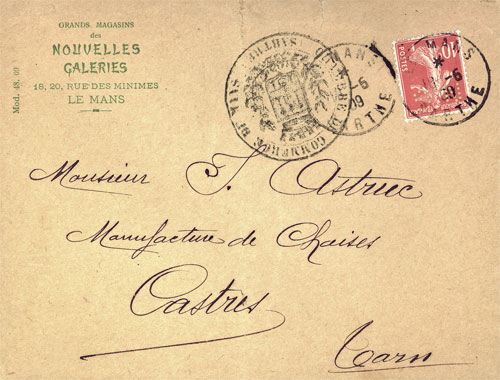 GRANDS MAGASINS
des
NOUVELLES
GALERIES
18, 20, RUE DES MINIMES
LE MANS
Mod. 48.
POSTES
10
MANS
6
09
SARTHE
MANS
6
09
RTHE
COMMERCE
SARTHE
Monsieur J. Astruc
Manufacture de Chaises
Castres
Tarn